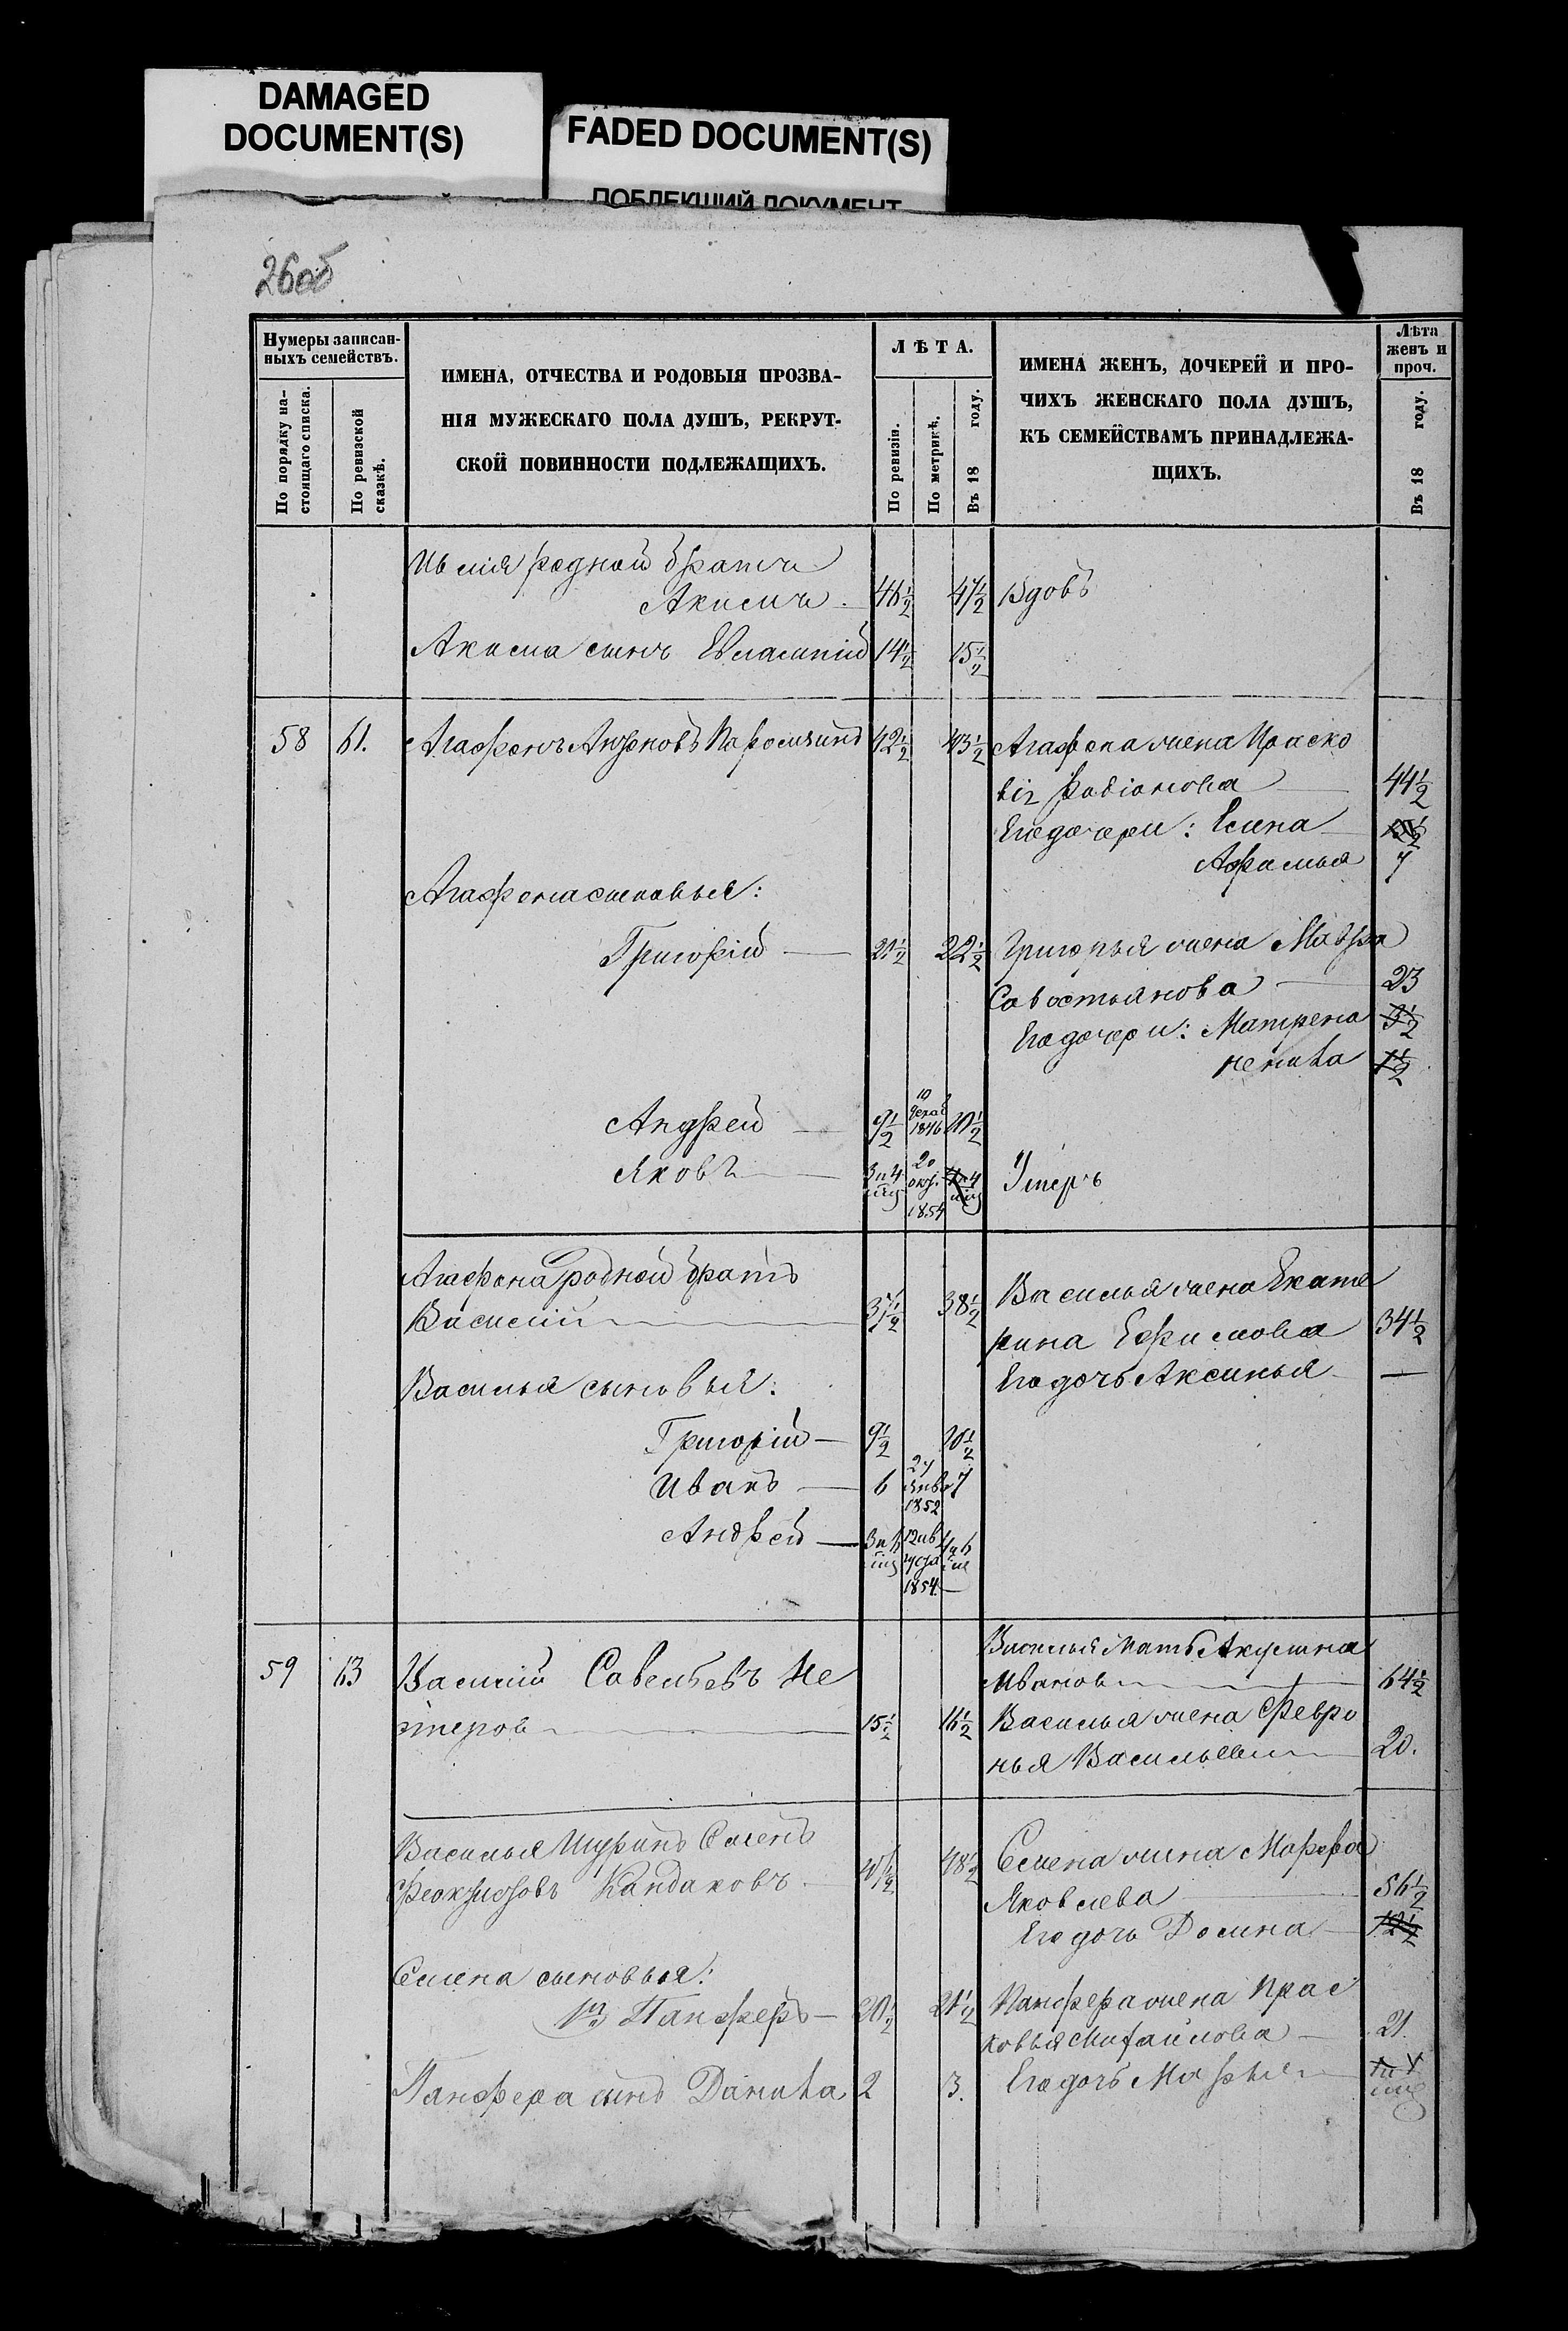 DAMAGED
DOCUMENT(S)
FADED DOCUMENT(S)
ПОБЛЕКШИЙ ДОКУМЕНТ
26об
Нумеры записан-
ныхъ семействъ.
По порядку на-
стоящаго списка.
По ревизской
сказкѣ.
ИМЕНА, ОТЧЕСТВА И РОДОВЫЯ ПРОЗВА-
НІЯ МУЖЕСКАГО ПОЛА ДУШЪ, РЕКРУТ-
СКОЙ ПОВИННОСТИ ПОДЛЕЖАЩИХЪ.
ЛѢТА.
По ревизіи.
По метрикѣ.
Въ 18 году.
ИМЕНА ЖЕНЪ, ДОЧЕРЕЙ И ПРО-
ЧИХЪ ЖЕНСКАГО ПОЛА ДУШЪ,
КЪ СЕМЕЙСТВАМЪ ПРИНАДЛЕЖА-
ЩИХЪ.
Лѣта
женъ и
проч.
Въ 18 году.
родной братъ
Акимъ 46½ 47½ Вдовъ
Акима сынъ Евлампій 14½ 15½
58 61. Агафонъ 42½ 43½ Агафона жена Праско
вія Родіонова 44½
Его дочери:
Афимья 7
Агафона сыновья:
Григорій 21½ 22½ Григорья жена Мавра
Савостьянова 23
Его дочери: Матрена 3½
1½
Андрей 9½ 10 декаб 1846 10½
Яковъ 3 и 4 мѣс 20 окт. 1854 Умеръ
Агафона родной братъ
Василій 37½ 38½ Василья жена Екате
рина Ефимова 34½
Василья сыновья: Его дочь Аксинья —
Григорій 9½ 10½
Иванъ 6 27 Янв 1852 7
Андрей 1854
59 63 Василій Савельевъ Не
стеров 15½ 16½
Василья мать Акулина
Иванов 64½
Василья жена Февро
нья Васильев 20.
Василья Шуринъ Семенъ
Феоктистовъ Кандаковъ 47½ 48½ Семена жена Марфа
Яковлева 56½
Его дочь Домна 12½
Семена сыновья:
1й Панферъ 20½ 21½ Панфера жена Прас
ковья Михайлова 21.
Панфера сынъ Данила 2 3. Его дочь Марья